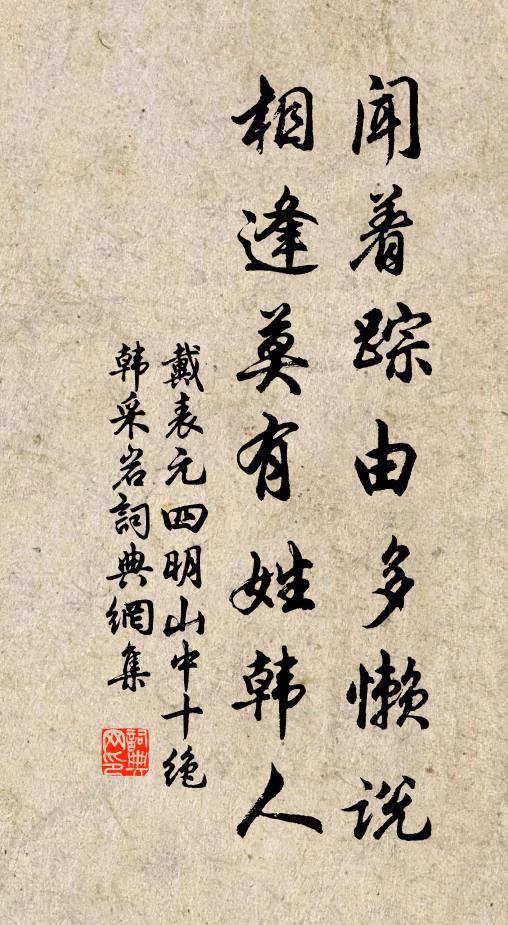 闻着踪由多懒说
相逢莫有姓韩人
戴表元四明山中十绝
韩采岩词典网集
词典网印